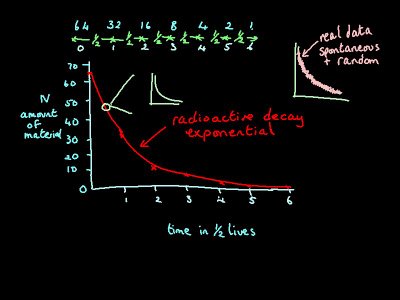 64 32 16 8 4 2 1
1/2 1/2 1/2 1/2 1/2 1/2
0 1 2 3 4 5 6
real data
spontaneous
+ random
70
60
50
40
30
20
10
0
N
amount
of
material
radioactive decay
exponential
1 2 3 4 5 6
time in 1/2 lives